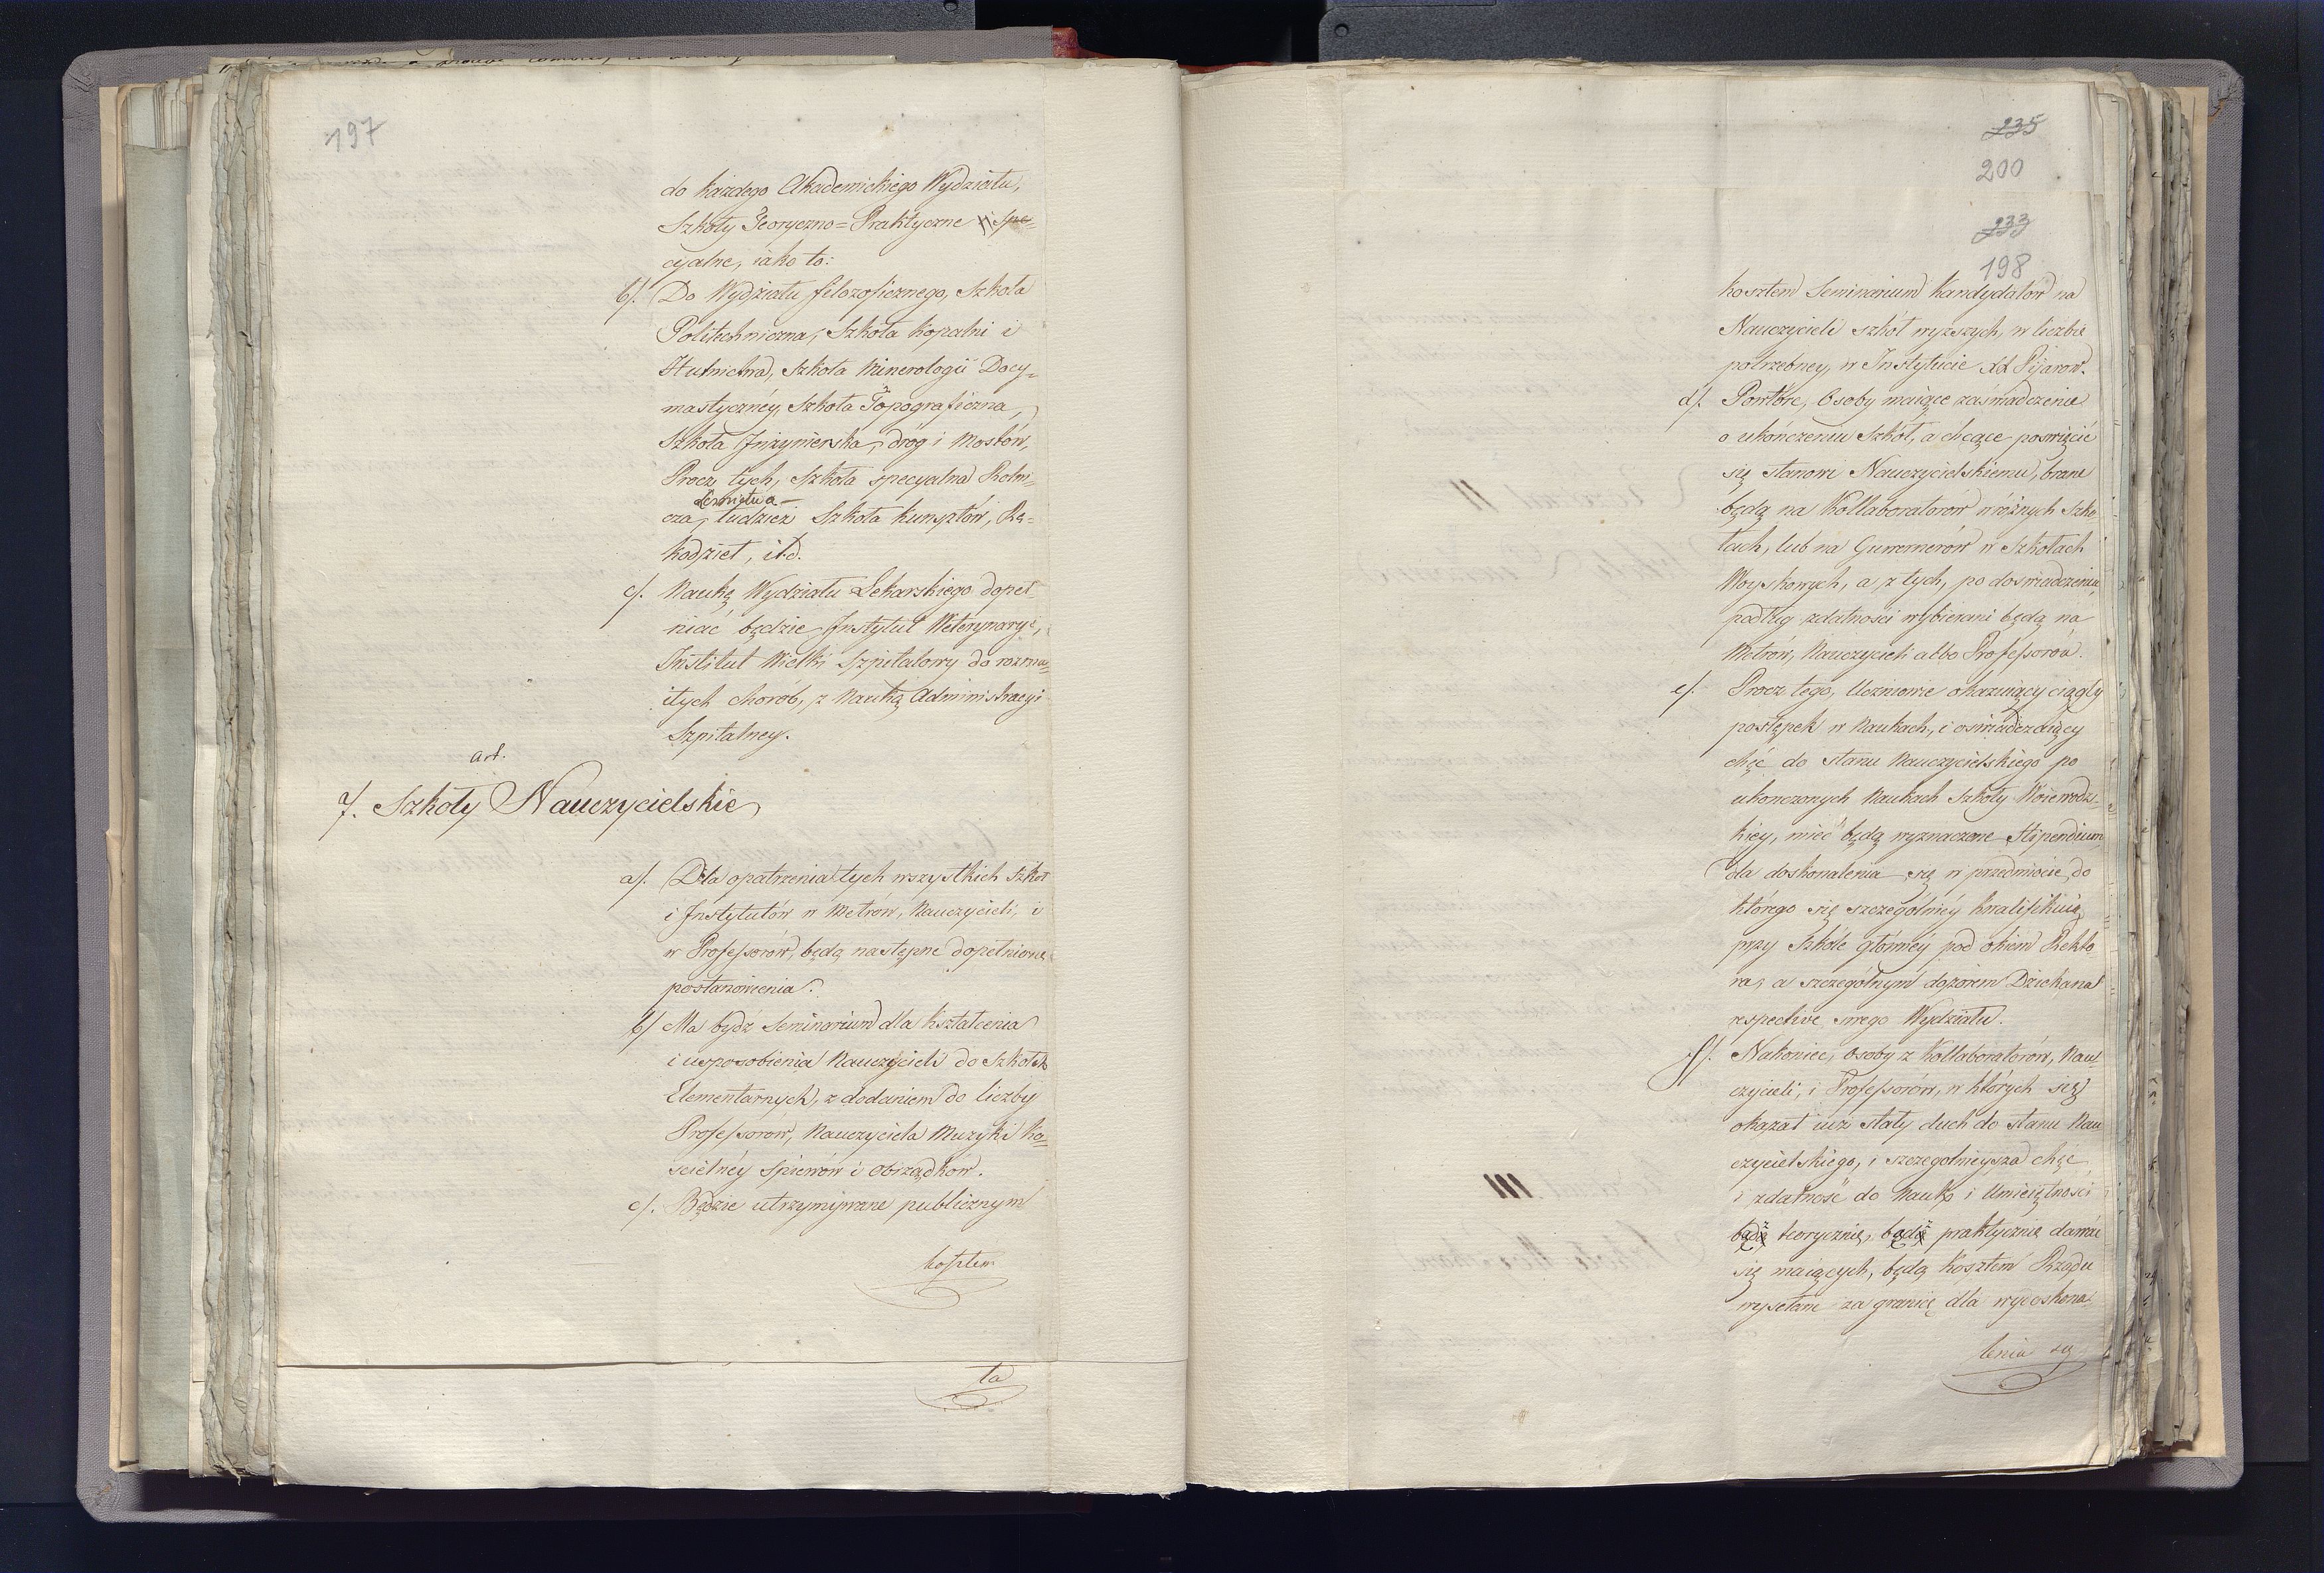 197
do każdego Akademickiego Wydziału,
Szkoły Teoryczno=Praktyczne i Spe-
cyalne, iako to:
b/. Do Wydziału filozoficznego, Szkoła
Politechniczna, Szkoła kopalni i
Hutnictwa, Szkoła Minerologii Docy-
mastycznéy, Szkoła Topograficzna,
Szkoła Inżynierska, dróg i Mostów,
Procz tych, Szkoła specyalna Rolni-
cza, tudzież Szkoła kunsztów, Rę-
kodzieł, itd.
c/. Naukę Wydziału Lekarskiego dopeł-
niać będzie Instytut Weterynaryi,
Institut Wielki Szpitalowy do rozma-
itych chorób, z Nauką Administracyi
Szpitalney.
art.
7. Szkoły Nauczycielskie
a/. Dla opatrzenia tych wszystkich Szkół
i Instytutów w Metrów, Nauczycieli, i
w Professorów, będą następne dopełnione
postanowienia.
b/ Ma bydź Seminarium dla kształcenia
i usposobienia Nauczycieli do Szkółek
Elementarnych, z dodaniem do liczby
Professorów, Nauczyciela Muzyki Ko-
scielnéy Spiewów i Obrządków.
c/. Będzie utrzymywane publicznym
kosztem
ta
235
200
233
198
kosztem Seminarium Kandydatów na
Nauczycieli szkół wyższych, w liczbie
potrzebney, w Instytucie XX Pijarow.
d/. Powtóre, Osoby maiące zaświadczenie
o ukończeniu Szkół, a chcące poswięcić
się stanowi Nauczycielskiemu, brane
będą na Kollaboratorów w różnych Szko-
łach, lub na Guwernerów w Szkołach
Woyskowych, a z tych, po doswiadczeniu,
podług zdatności wybierani będą na
Metrów, Nauczycieli albo Professorów.
e/. Procz tego, Uczniowie okazuiący ciągły
postępek w Naukach, i oswiadczaiący
chęć do stanu Nauczycielskiego po
ukonczonych Naukach Szkoły Woiewodz-
kiey, mieć będą wyznaczone Stipendium
dla doskonalenia się w przedmiocie, do
którego się szczególniéy kwalifikuią,
przy Szkole głównéy pod okiem Rekto
ra, a szczególnym dozorem Dziekana
respective swego Wydziału.
f/. Nakoniec, Osoby z Kollaboratorów, Nau-
czycieli, i Professorów, w których się
okazał iuż stały duch do stanu Nau
czycielskiego, i szczegolnieysza chęć
i zdatność do Nauk i Umieiętności
bądź teorycznie, bądź praktycznie dawać
się maiących, będą kosztem Rządu
wysełani za granicę dla wydoskona-
lenia się